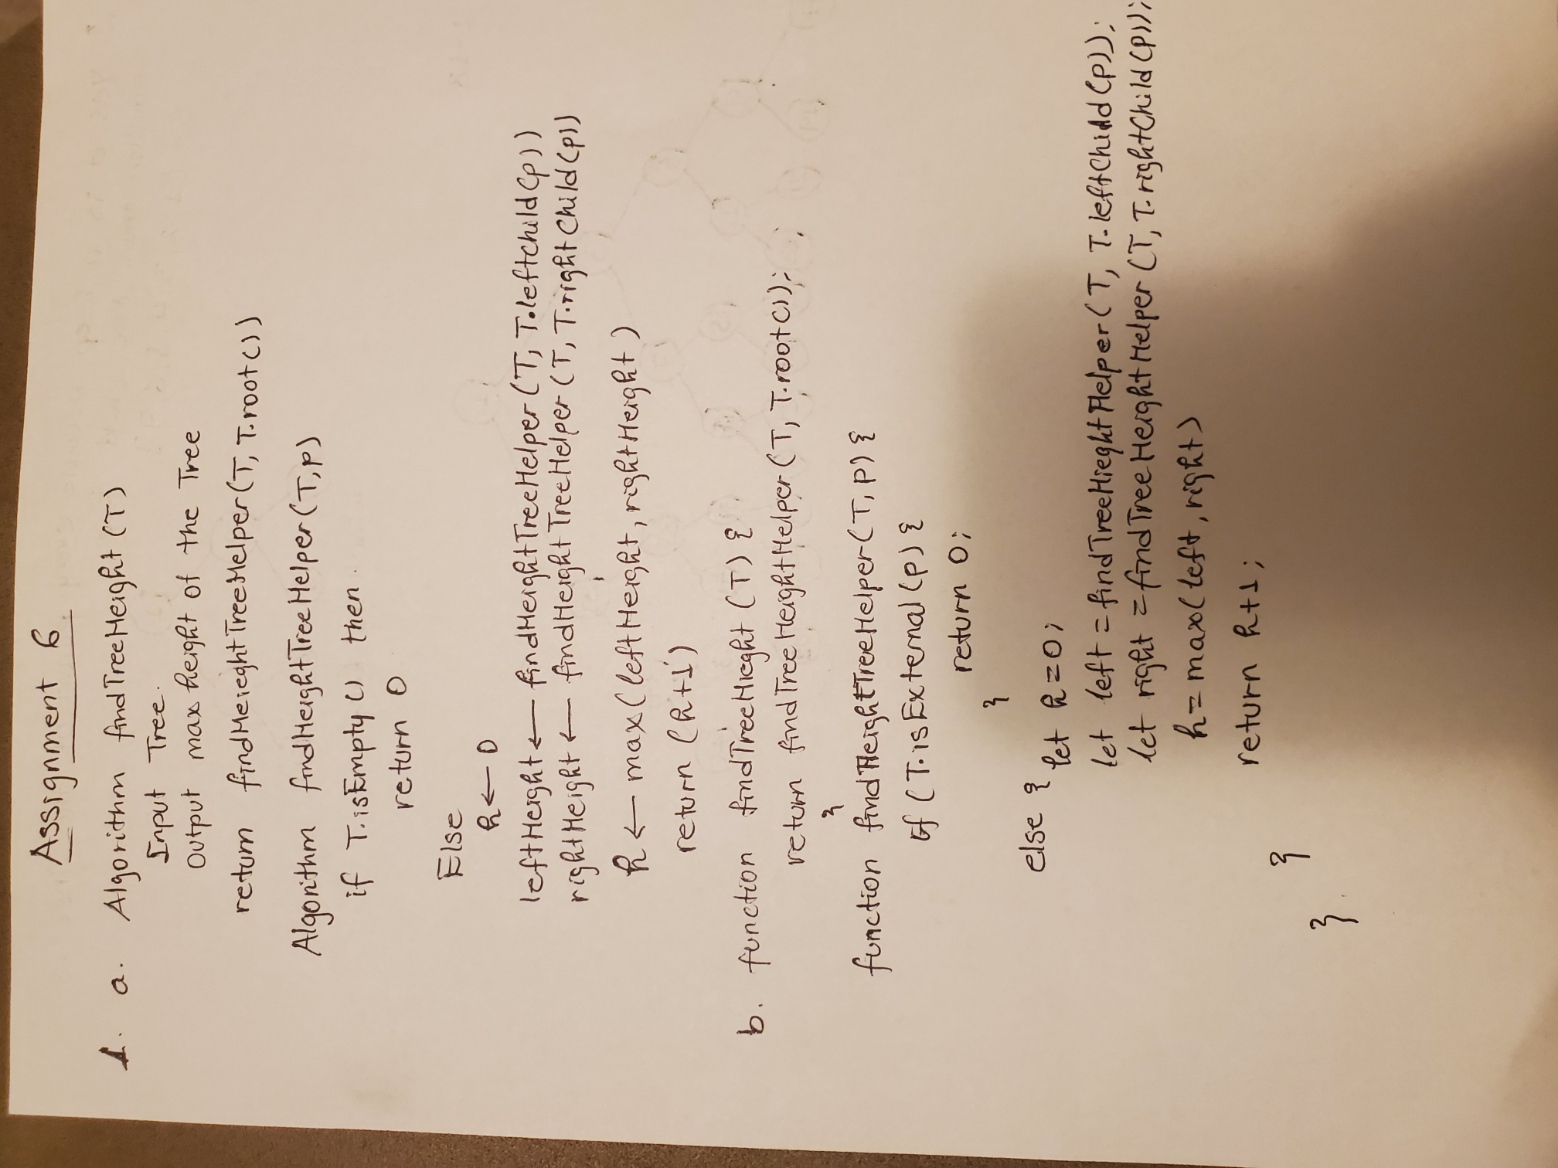 Assignment 6
1. a. Algorithm findTreeHeight (T)
Input Tree.
Output max height of the Tree
return findHeieghtTreeHelper(T, T.root())
Algorithm findHeightTreeHelper(T,p)
if T.isEmpty () then
return 0
Else
h ← 0
leftHeight ← findHeightTreeHelper(T, T.leftchild(p))
rightHeight ← findHeightTreeHelper(T, T.rightChild(p))
h ← max(leftHeight, rightHeight)
return (h+1)
b. function findTreeHieght (T) {
return findTreeHeightHelper(T, T.root());
}
function findHeightTreeHelper(T, p) {
If (T.isExternal(p) {
return 0;
}
else {
let h=0;
let left = findTreeHieghtHelper(T, T.leftChild(p));
let right = findTreeHeightHelper(T, T.rightChild(p));
h = max(left, right)
return h+1;
}
}